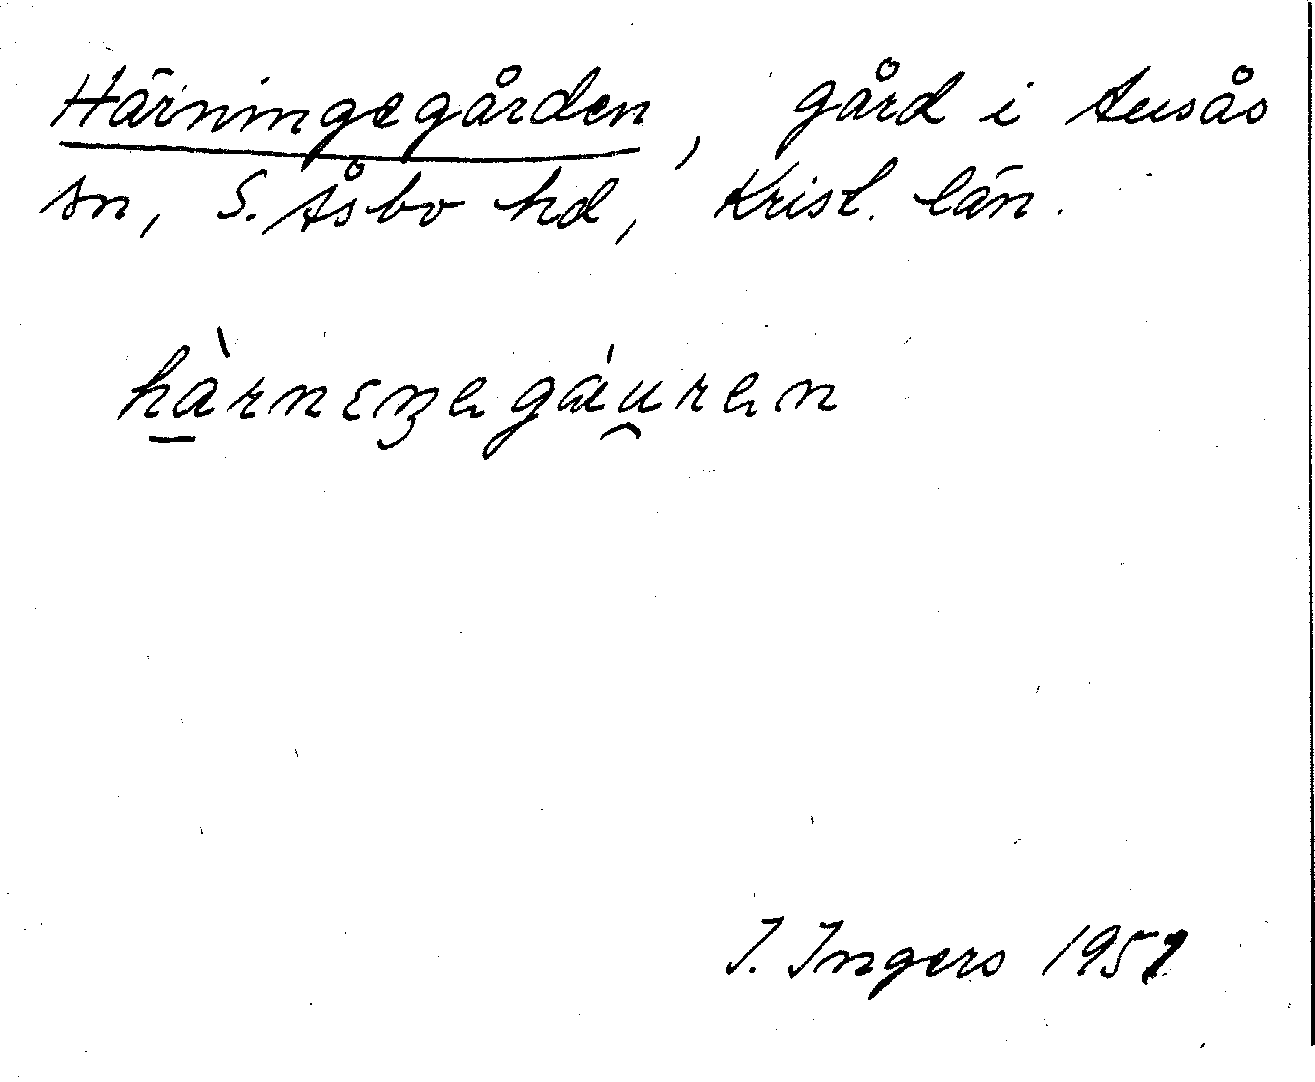 Härningegården, gård i Ausås
sn, S. Åsbo hd, Krist. län.
hàrnɛŋegáu̯ren
I. Ingers 1951